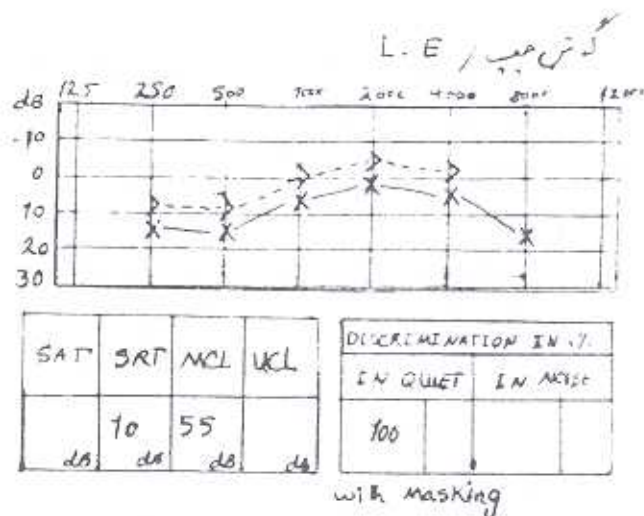 گوش چپ / L.E
dB 125 250 500 1000 2000 4000 8000
-10
0
10
20
30
SAT SRT MCL UCL
10 55
dB dB dB dB
DISCRIMINATION IN %
IN QUIET IN NOISE
100
with masking